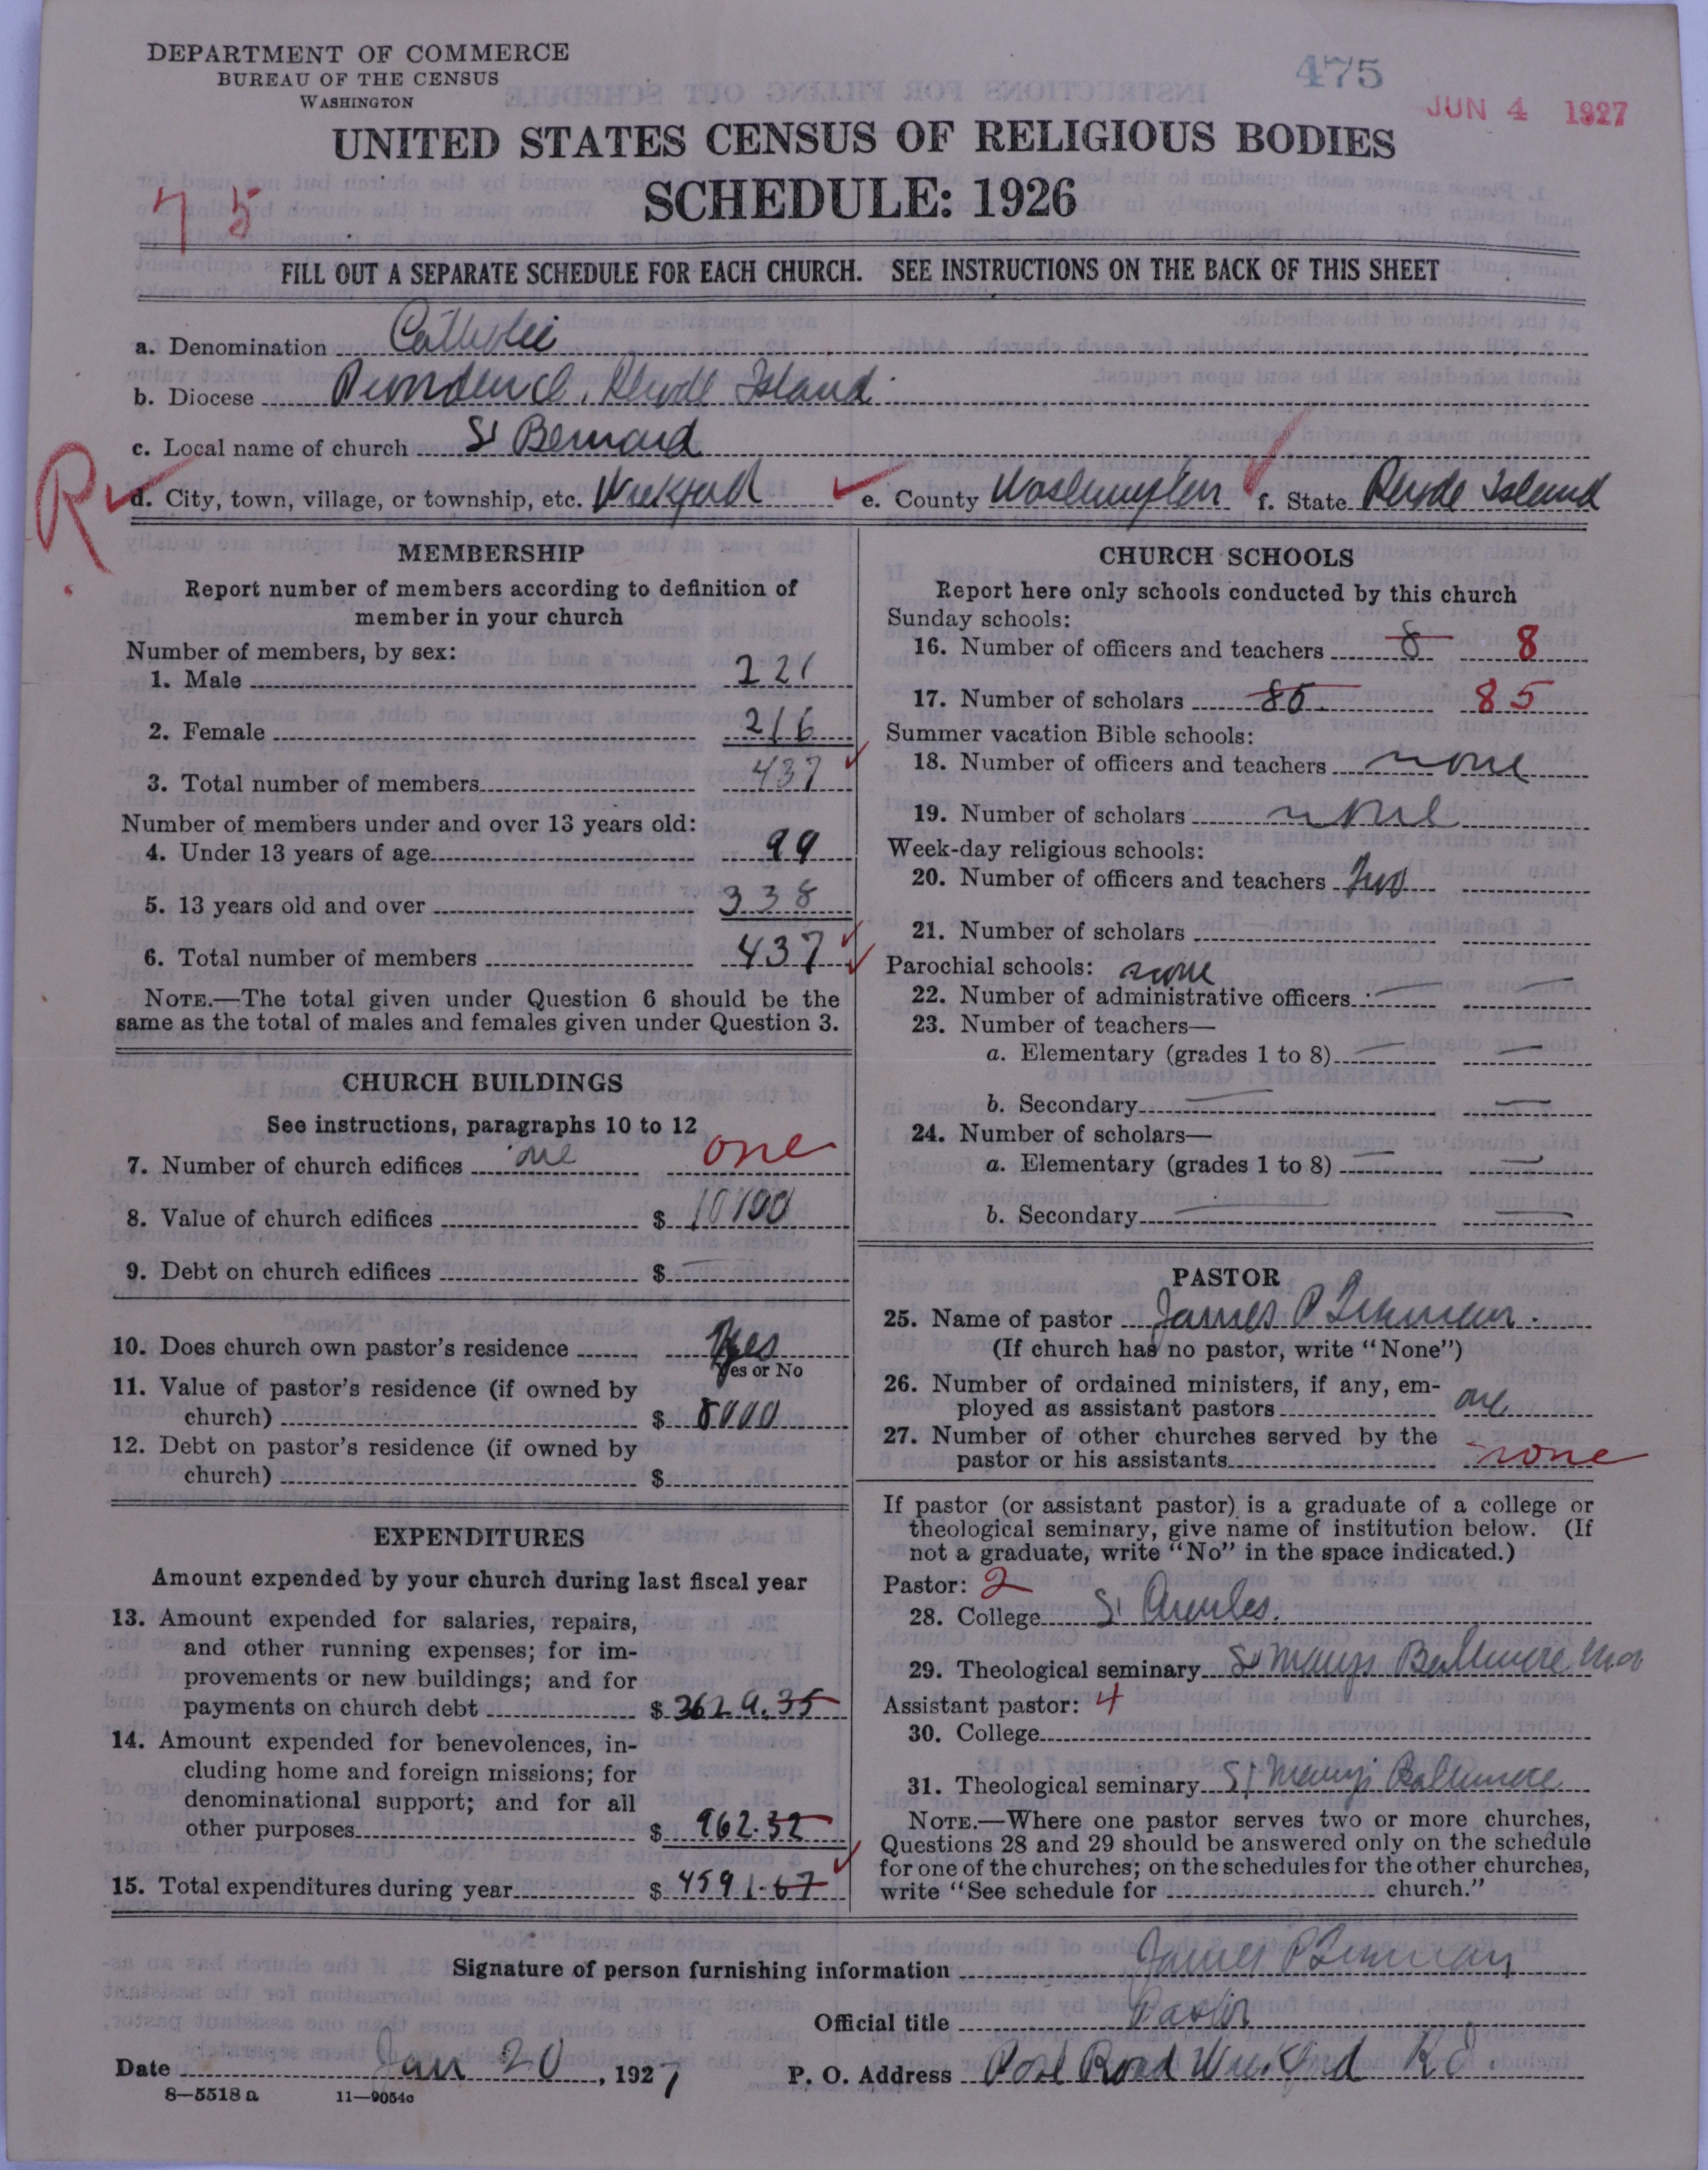 DEPARTMENT OF COMMERCE
BUREAU OF THE CENSUS
WASHINGTON
475
JUN 4 1927
UNITED STATES CENSUS OF RELIGIOUS BODIES
SCHEDULE: 1926
75
FILL OUT A SEPARATE SCHEDULE FOR EACH CHURCH. SEE INSTRUCTIONS ON THE BACK OF THIS SHEET
a. Denomination Catholic
b. Diocese Providence, Rhode Island
c. Local name of church St Bernard
R
d. City, town, village, or township, etc. Wickford e. County Washington f. State Rhode Island
MEMBERSHIP
Report number of members according to definition of
member in your church
Number of members, by sex:
1. Male 221
2. Female 216
3. Total number of members 437
Number of members under and over 13 years old:
4. Under 13 years of age 99
5. 13 years old and over 338
6. Total number of members 437
NOTE.—The total given under Question 6 should be the
same as the total of males and females given under Question 3.
CHURCH BUILDINGS
See instructions, paragraphs 10 to 12
7. Number of church edifices one one
8. Value of church edifices $
9. Debt on church edifices $ —
10. Does church own pastor's residence Yes
Yes or No
11. Value of pastor's residence (if owned by
church) $ 8000
12. Debt on pastor's residence (if owned by
church) $
EXPENDITURES
Amount expended by your church during last fiscal year
13. Amount expended for salaries, repairs,
and other running expenses; for im-
provements or new buildings; and for
payments on church debt $ 3629.35
14. Amount expended for benevolences, in-
cluding home and foreign missions; for
denominational support; and for all
other purposes $ 962.32
15. Total expenditures during year $ 4591.67
CHURCH SCHOOLS
Report here only schools conducted by this church
Sunday schools:
16. Number of officers and teachers 8 8
17. Number of scholars 85 85
Summer vacation Bible schools:
18. Number of officers and teachers none
19. Number of scholars none
Week-day religious schools:
20. Number of officers and teachers two
21. Number of scholars
Parochial schools: none
22. Number of administrative officers — —
23. Number of teachers—
a. Elementary (grades 1 to 8) — —
b. Secondary — —
24. Number of scholars—
a. Elementary (grades 1 to 8) — —
b. Secondary — —
PASTOR
25. Name of pastor James P
(If church has no pastor, write "None")
26. Number of ordained ministers, if any, em-
ployed as assistant pastors one
27. Number of other churches served by the
pastor or his assistants none
If pastor (or assistant pastor) is a graduate of a college or
theological seminary, give name of institution below. (If
not a graduate, write "No" in the space indicated.)
Pastor: 2
28. College St Charles.
29. Theological seminary St Marys Baltimore
Assistant pastor: 4
30. College
31. Theological seminary St Marys Baltimore
NOTE.—Where one pastor serves two or more churches,
Questions 28 and 29 should be answered only on the schedule
for one of the churches; on the schedules for the other churches,
write "See schedule for church."
Signature of person furnishing information James P
Official title Pastor
Date Jan 20, 1927 P. O. Address Post Road Wickford R.I.
8—5518 a 11—9054c